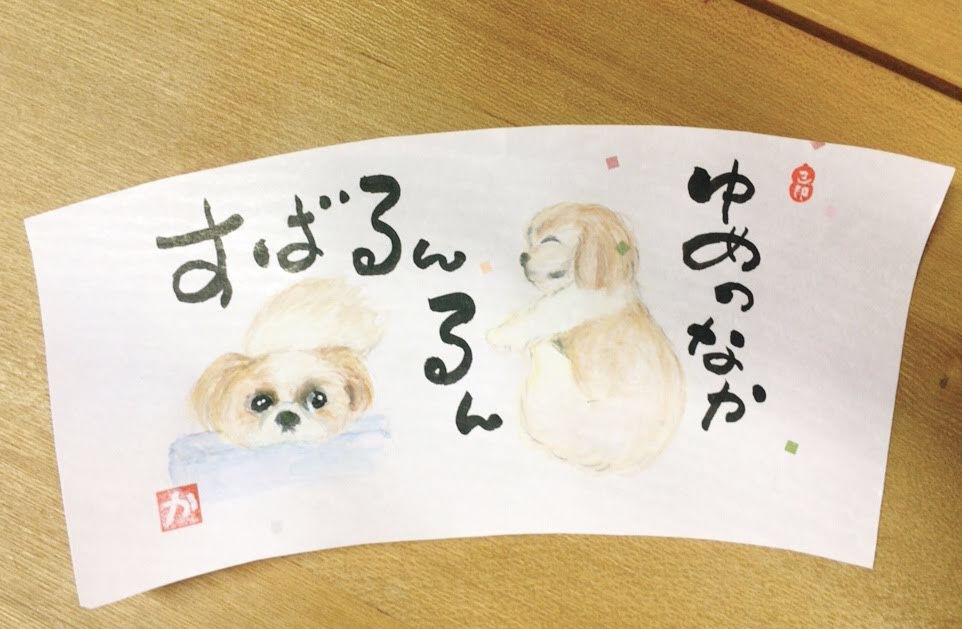 ゆめのなか
すばるんるん
か